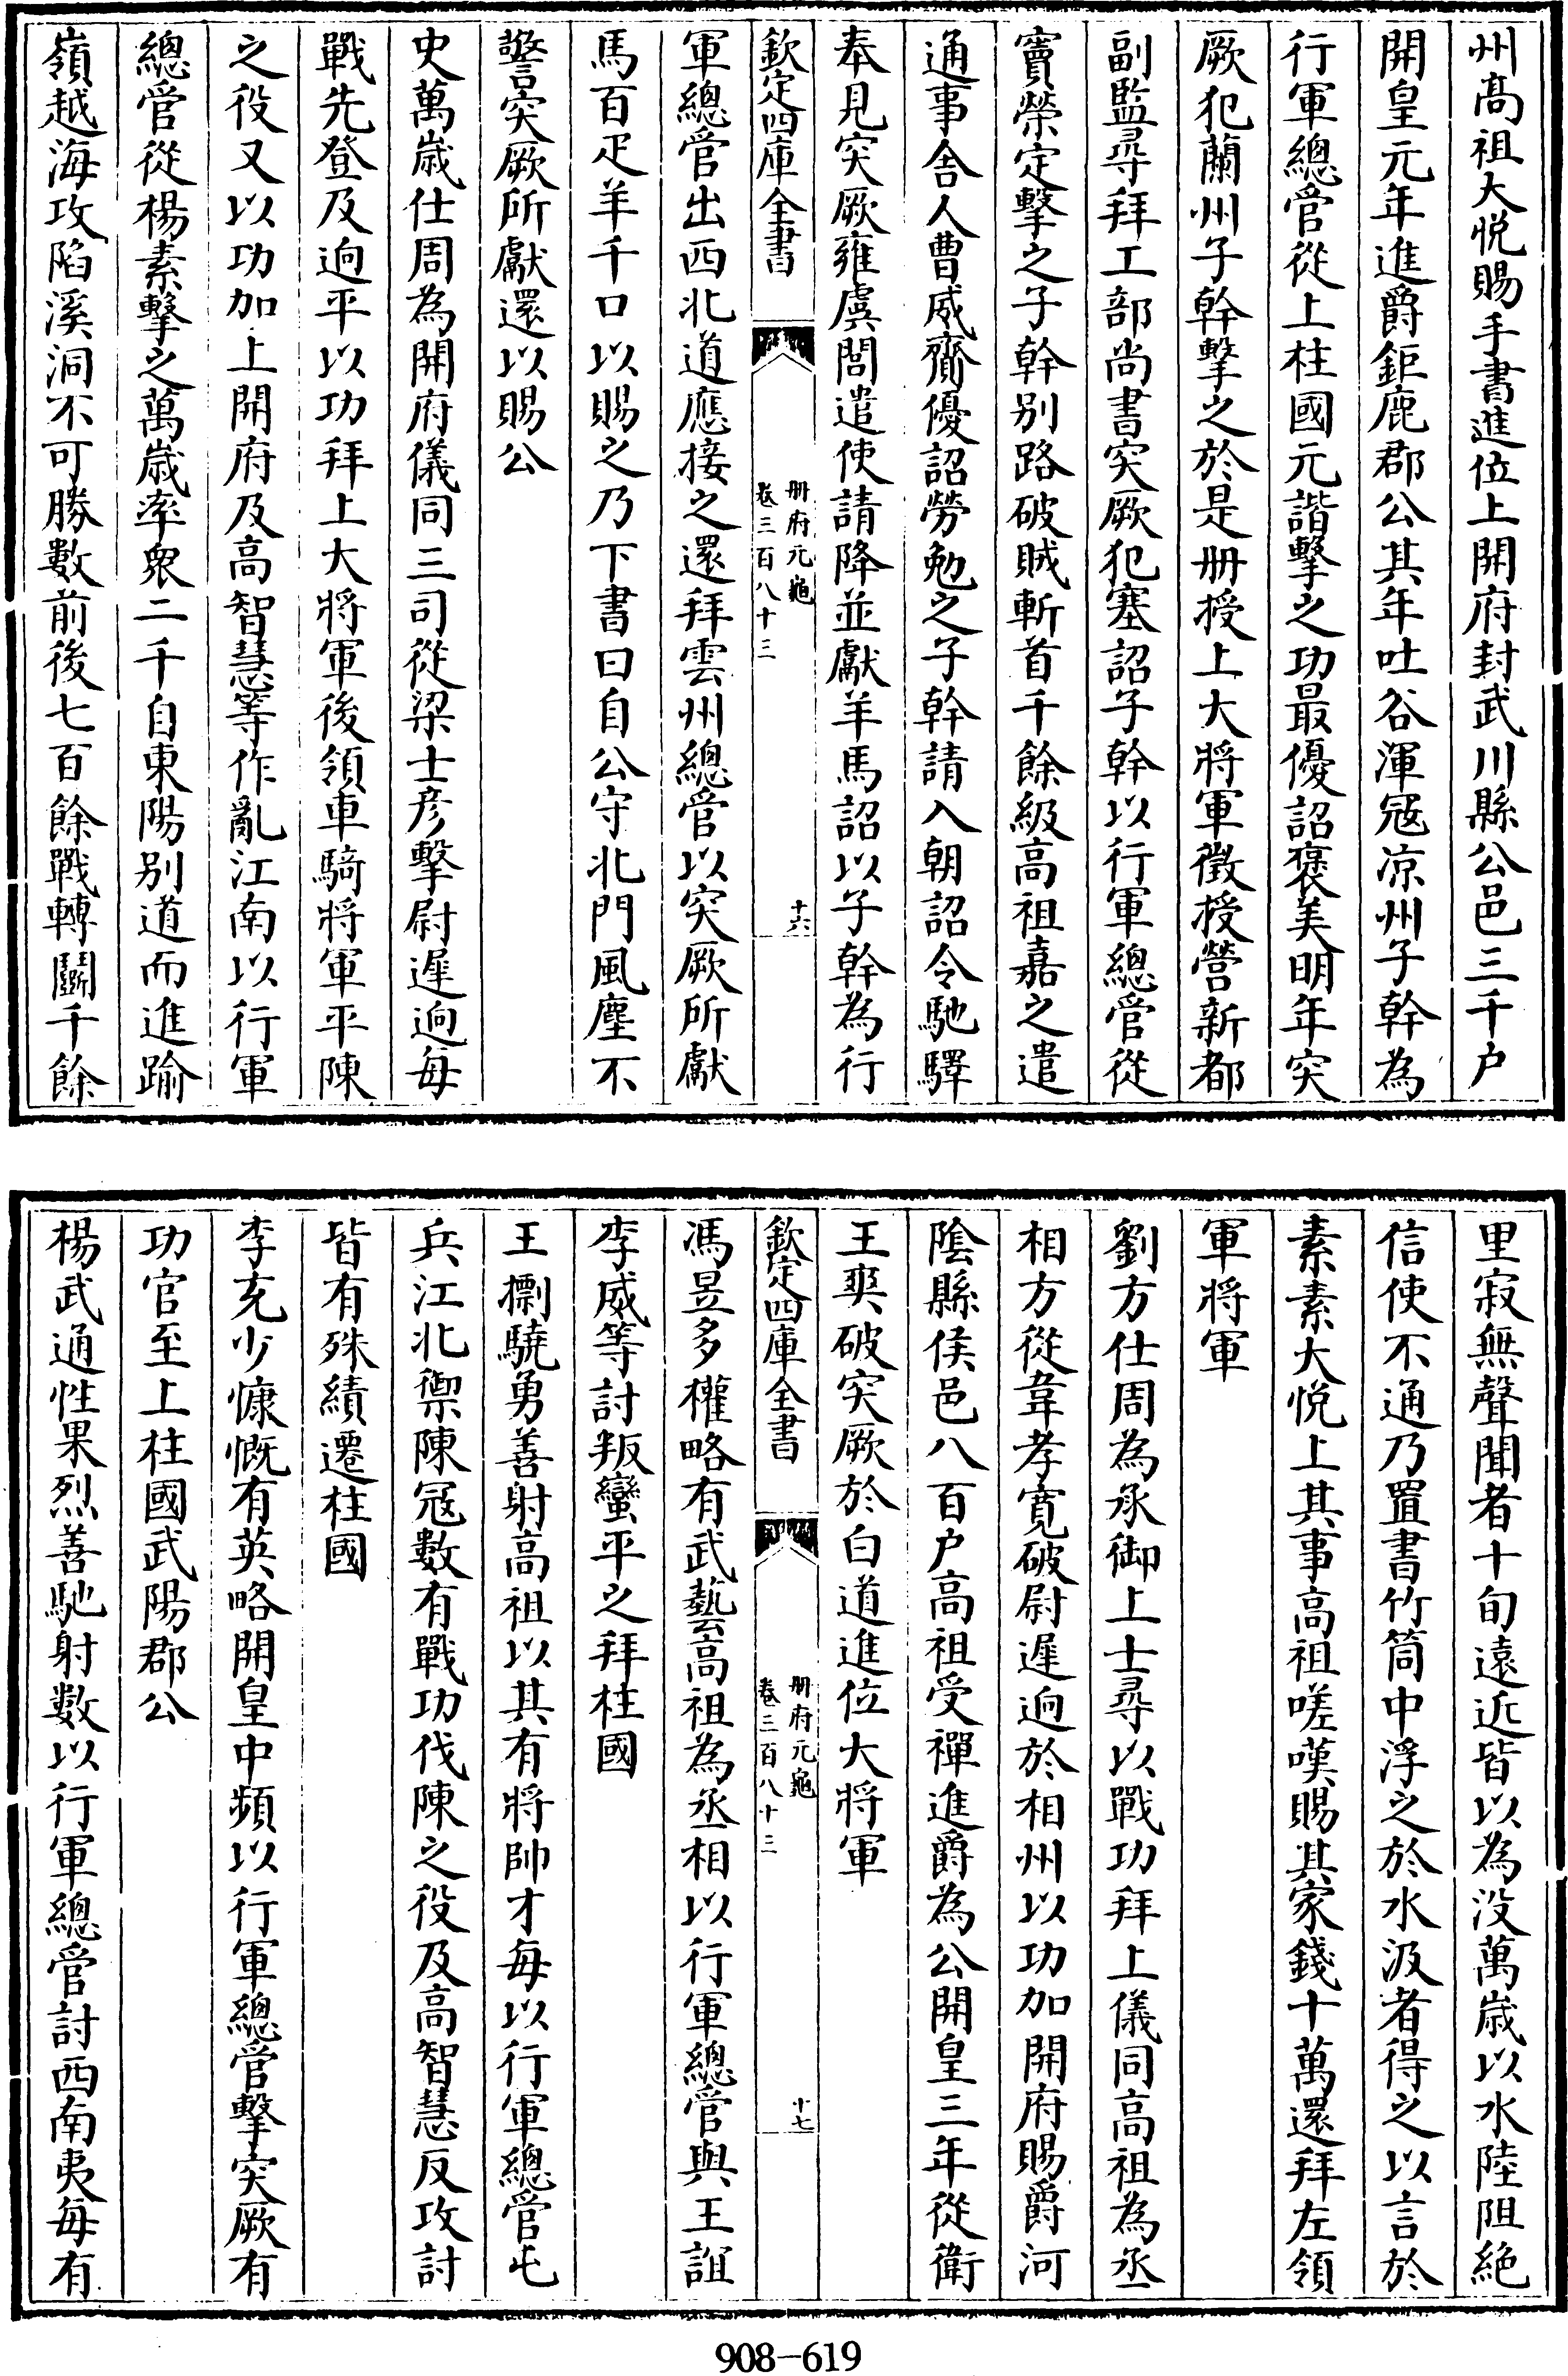 州髙祖大悦賜手書進位上開府封武川縣公邑三千户
開皇元年進爵鉅鹿郡公其年吐谷渾冦凉州子幹為
行軍總管從上柱國元諧擊之功最優詔褒美明年突
厥犯蘭州子幹擊之於是册授上大將軍徵授營新都
副監尋拜工部尚書突厥犯塞詔子幹以行軍總管從
竇榮定擊之子幹别路破賊斬首千餘級高祖嘉之遣
通事舍人曹威齎優詔勞勉之子幹請入朝詔令馳驛
奉見突厥雍虞閭遣使請降並獻羊馬詔以子幹為行
欽定四庫全書
册府元龜
卷三百八十三
十六
軍總管出西北道應接之還拜雲州總管以突厥所獻
馬百疋羊千口以賜之乃下書曰自公守北門風塵不
警突厥所獻還以賜公
史萬歳仕周為開府儀同三司從梁士彦擊尉遲迥每
戰先登及迥平以功拜上大將軍後領車騎將軍平陳
之役又以功加上開府及高智慧等作亂江南以行軍
總管從楊素擊之萬歳率衆二千自東陽别道而進踰
嶺越海攻陷溪洞不可勝數前後七百餘戰轉鬭千餘
里寂無聲聞者十旬遠近皆以為没萬歳以水陸阻絶
信使不通乃置書竹筒中浮之於水汲者得之以言於
素素大悦上其事高祖嗟嘆賜其家錢十萬還拜左領
軍將軍
劉方仕周為承御上士尋以戰功拜上儀同高祖為丞
相方從韋孝寛破尉遲迥於相州以功加開府賜爵河
隂縣侯邑八百户高祖受禪進爵為公開皇三年從衛
王爽破突厥於白道進位大將軍
欽定四庫全書
册府元龜
卷三百八十三
十七
馮昱多權略有武藝高祖為丞相以行軍總管與王誼
李威等討叛蠻平之拜柱國
王㯹驍勇善射高祖以其有將帥才每以行軍總管屯
兵江北禦陳冦數有戰功伐陳之役及高智慧反攻討
皆有殊績遷柱國
李充少慷慨有英略開皇中頻以行軍總管擊突厥有
功官至上柱國武陽郡公
楊武通性果烈善馳射數以行軍總管討西南夷每有
908-619